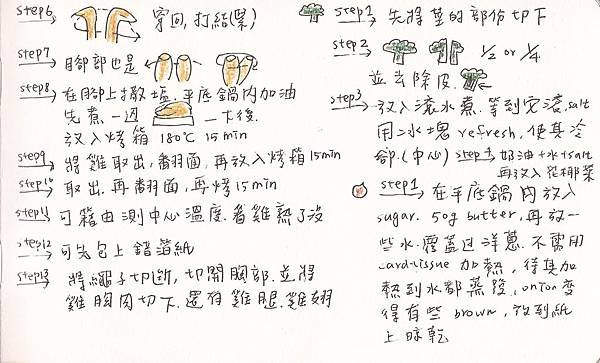 step6 穿回,打結(緊)
step7 腳部也是
step8 在腳上撒塩.平底鍋內加油
先煮一週 一下後.
放入烤箱 180℃ 15min
step9 將雞取出,翻面,再放入烤箱15min
step10 取出.再翻面,再烤15min
step11 可藉由測中心溫度.看雞熟了沒
step12 可先包上錯箔紙
step13 將繩子切斷,切開胸部.並將
雞胸肉切下.還有雞腿.雞翅
step1 先將莖的部份切下
step2 1/2 or 1/4
並去除皮.
step3 放入滾水煮.等到完滾,salt
用冰塊 refresh,使其冷
卻.(中心) step4 奶油+水+salt
再放入花椰菜
step1 在平底鍋內放入
sugar. 50g butter,再放一
些水.覆蓋过洋蔥.不需用
card-tissue 加熱,待其加
熱到水都蒸發,onion變
得有些 brown,放到紙
上晾乾